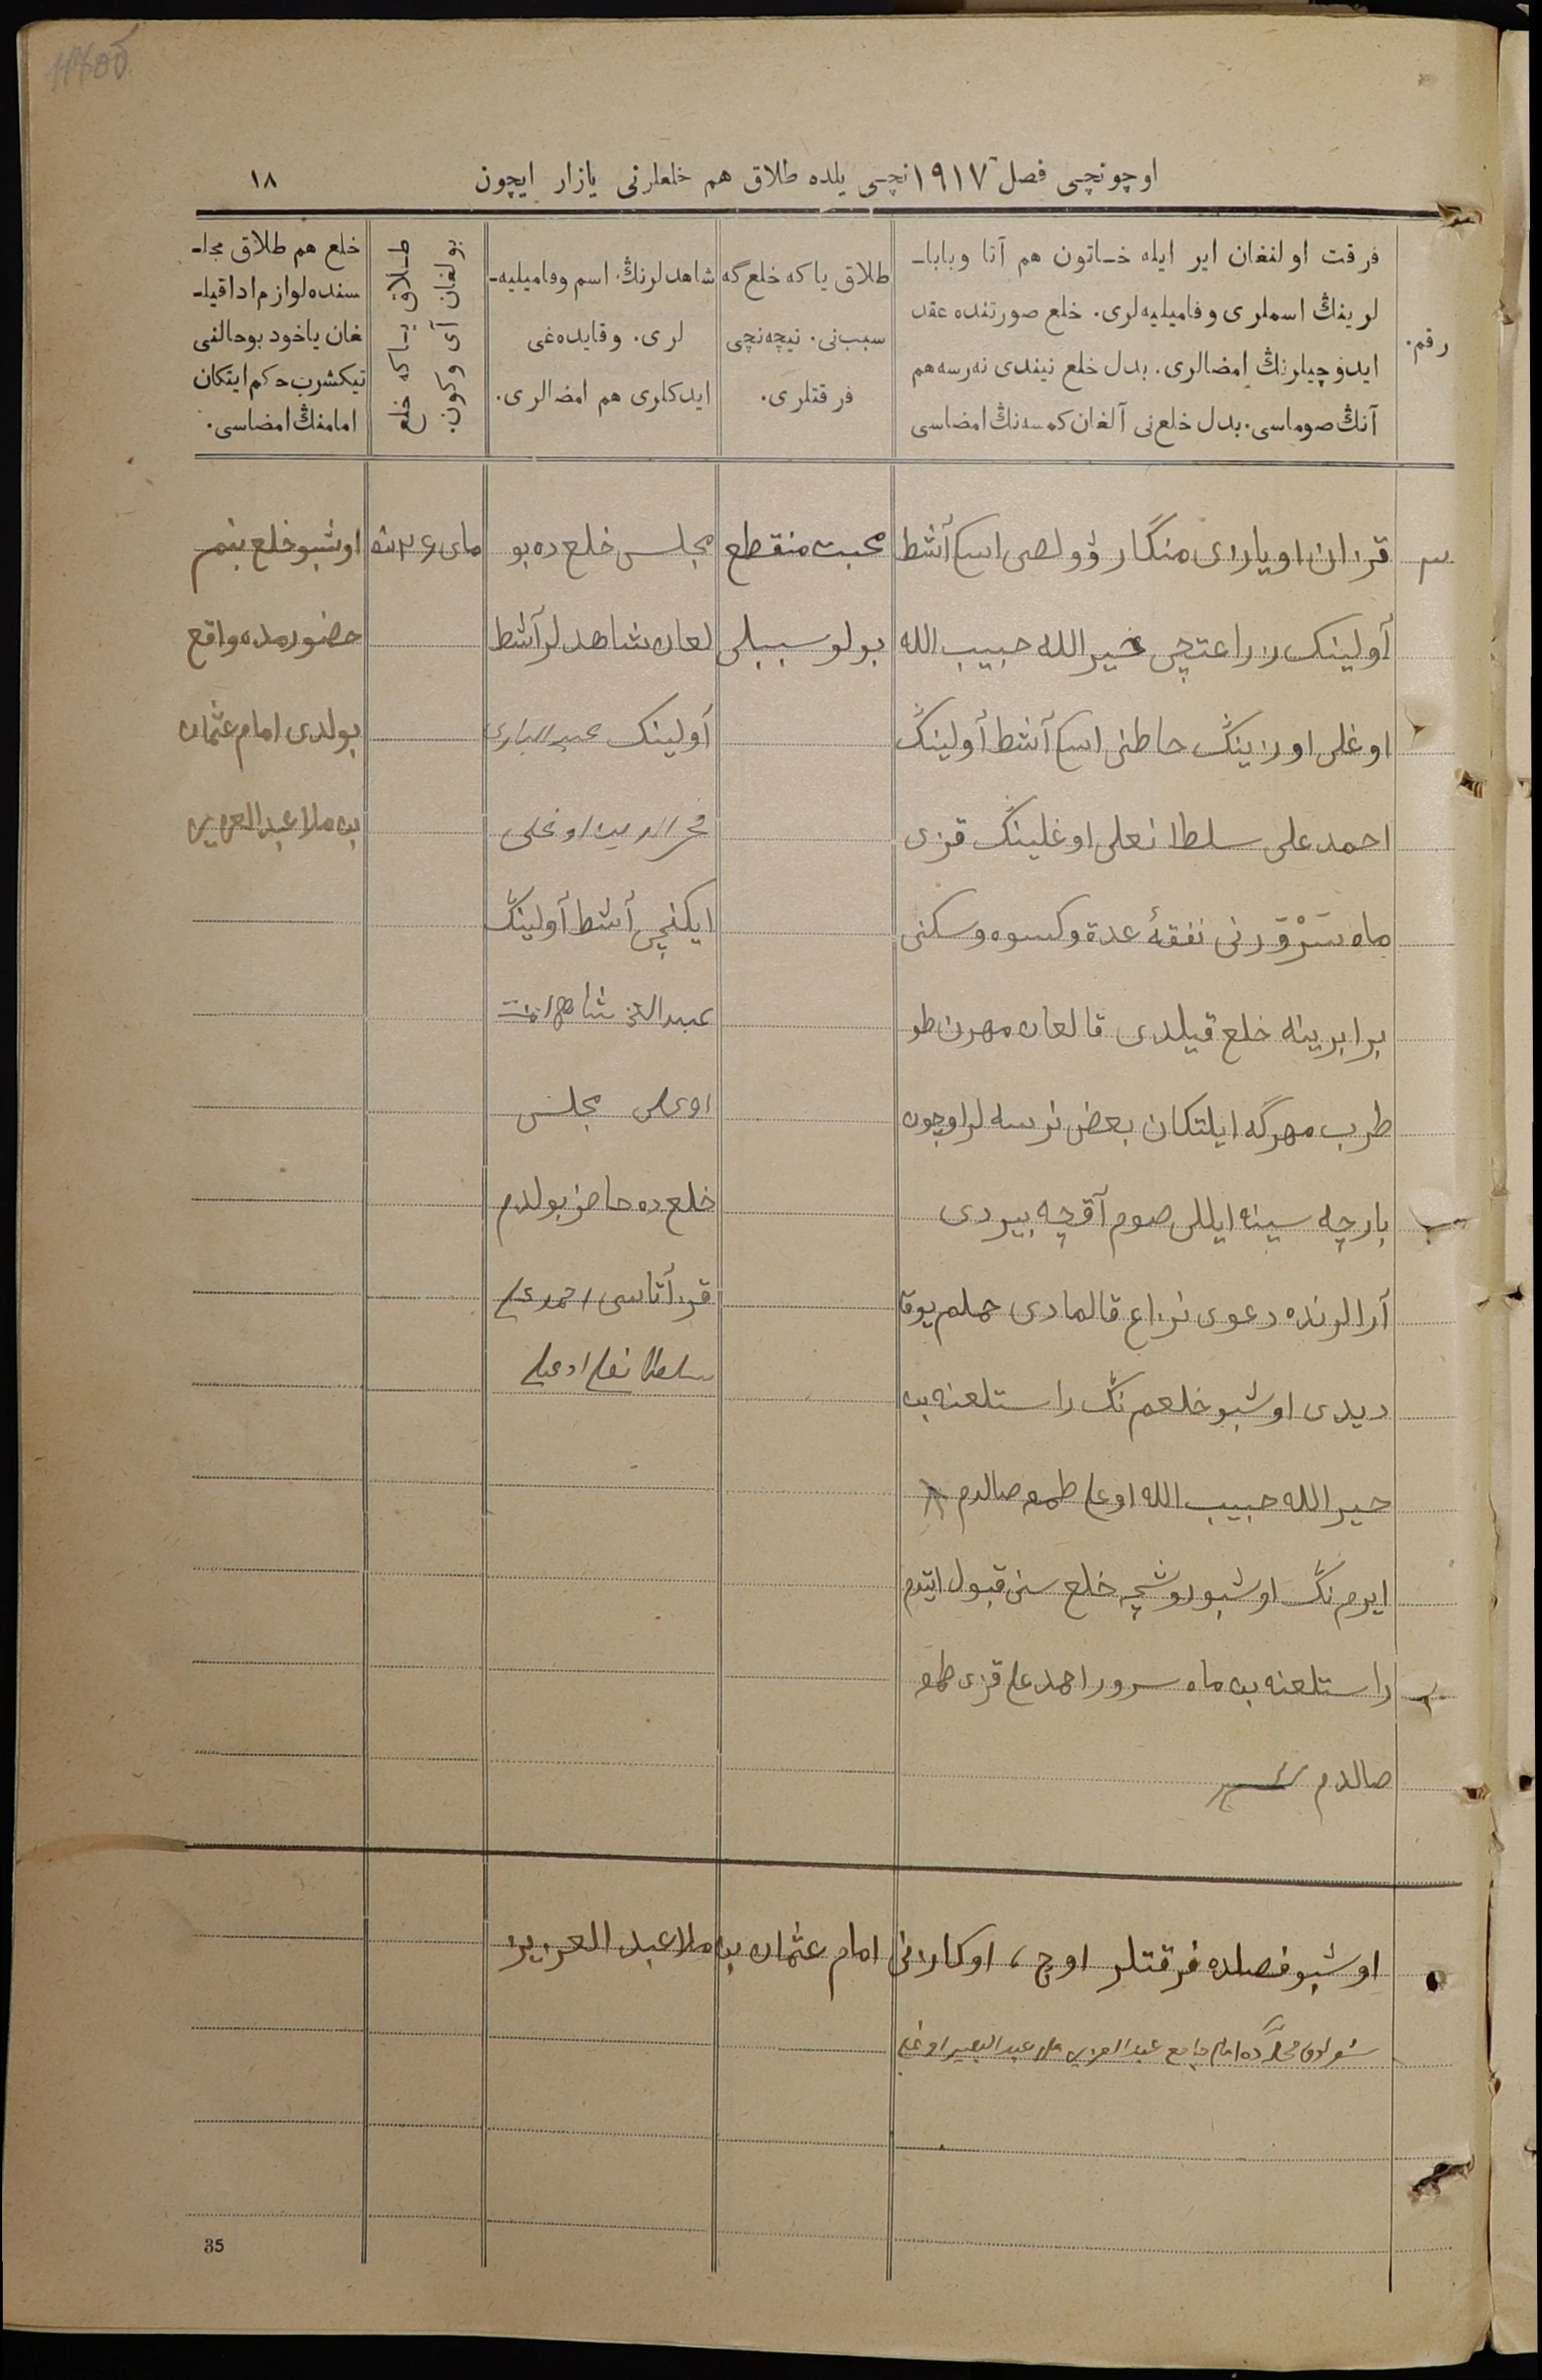 اوچونچی فصل ١٩١٧نچی يلده طلاق هم خلعلرنی يازار ايچون
١٨
رقم.
فرقت اولنغان اير ايله خاتون هم آتا وبابا-
لرينڭ اسملری وفاميليه‌لری. خلع صورتنده عقد
ايدوچيلرنڭ امضالری. بدل خلع نيندی نه‌رسه هم
آنڭ صوماسی. بدل خلع‌نی آلغان كمسه‌نڭ امضاسی
طلاق ياكه خلع‌گه
سبب‌نی. نيچه‌نچی
فرقتلری.
شاهدلرنڭ اسم وفاميليه-
لری. وقايده‌غی
ايدكلری هم امضالری.
طلاق ياكه خلع
بولغان آی وكون.
خلع هم طلاق مجا-
سنده لوازم ادا قيل-
غان ياخود بو حالنی
تيكشرب حكم ايتكان
امامنڭ امضاسی.
قزان اويازی منگار ڤولصی اسكی آشط
أولينڭ زراعتچی خيرالله حبيب الله
اوغلی اوزينڭ خاطنی اسكی آشط أولينڭ
احمدعلی سلطانعلی اوغلينڭ قزی
ماه سَرْوَرنی نفقهٔ عدة وكسوه وسكنی
برابرينه خلع قيلدی قالغان مهرن طو
طرب مهرگه ايلتكان بعض نرسه لر اوچون
بارچه سينه ايللی صوم آقچه بيردی
آرالرنده دعوی نزاع قالمادی حملم يوق
ديدی اوشبو خلعم نڭ راستلغنه بن
خيرالله حبيب الله اوغلی طمغه صالدم
ايرم نڭ اوشبو روشچه خلع سنی قبول ايتدم
راستلغنه بن ماه سرور احمدعلی قزی طمغه
صالدم
محبت منقطع
بولو سببلی
مجلس خلع ده بو
لغان شاهدلر آشط
أولينڭ عبدالباری
فخرالدين اوغلی
ايكنچی أشط أولينڭ
عبدالغنی
اوغلی مجلس
خلع ده حاضر بولدم
قز أتاسی احمدعلی
سلطانعلی اوغلی
مای ٢٦ نده
اوشبو خلع بنم
حضورمده واقع
بولدی امام عثمان
بن ملا عبدالعزيز
اوشبو فصلده فرقتلر اوچ، اوكازنی امام عثمان بن ملا عبدالعزيز
محله ده امام جامع عبدالعزيز ملا عبدالبصير اوغلی
35